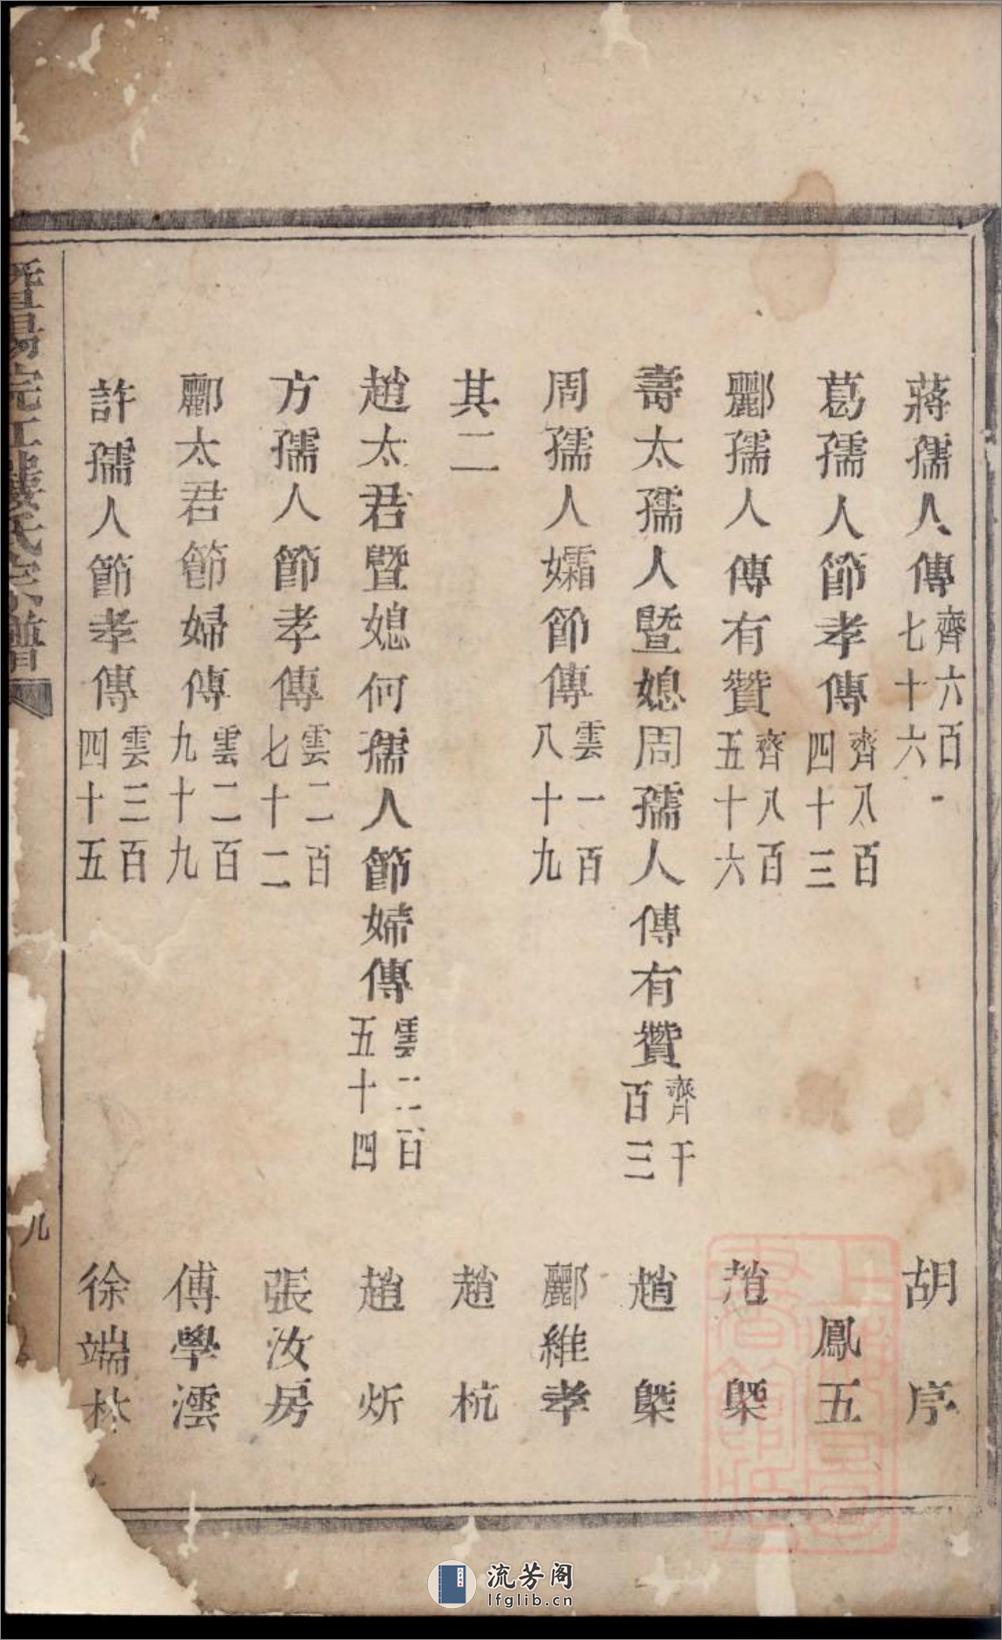 蔣孺人傳齊六百七十六 胡序
葛孺人節孝傳齊八百四十三 鳳五
酈孺人傳有贊齊八百五十六 趙槼
壽太孺人暨媳周孺人傳有贊齊千百三 趙槼
周孺人孀節傳雲一百八十九 酈維孝
其二 趙杭
趙太君暨媳何孺人節婦傳雲二百五十四 趙炘
方孺人節孝傳雲二百七十二 張汝房
酈太君節婦傳雲二百九十九 傅學澐
許孺人節孝傳雲三百四十五 徐端林
暨陽浣江樓氏宗譜
九
流芳阁
lfglib.cn